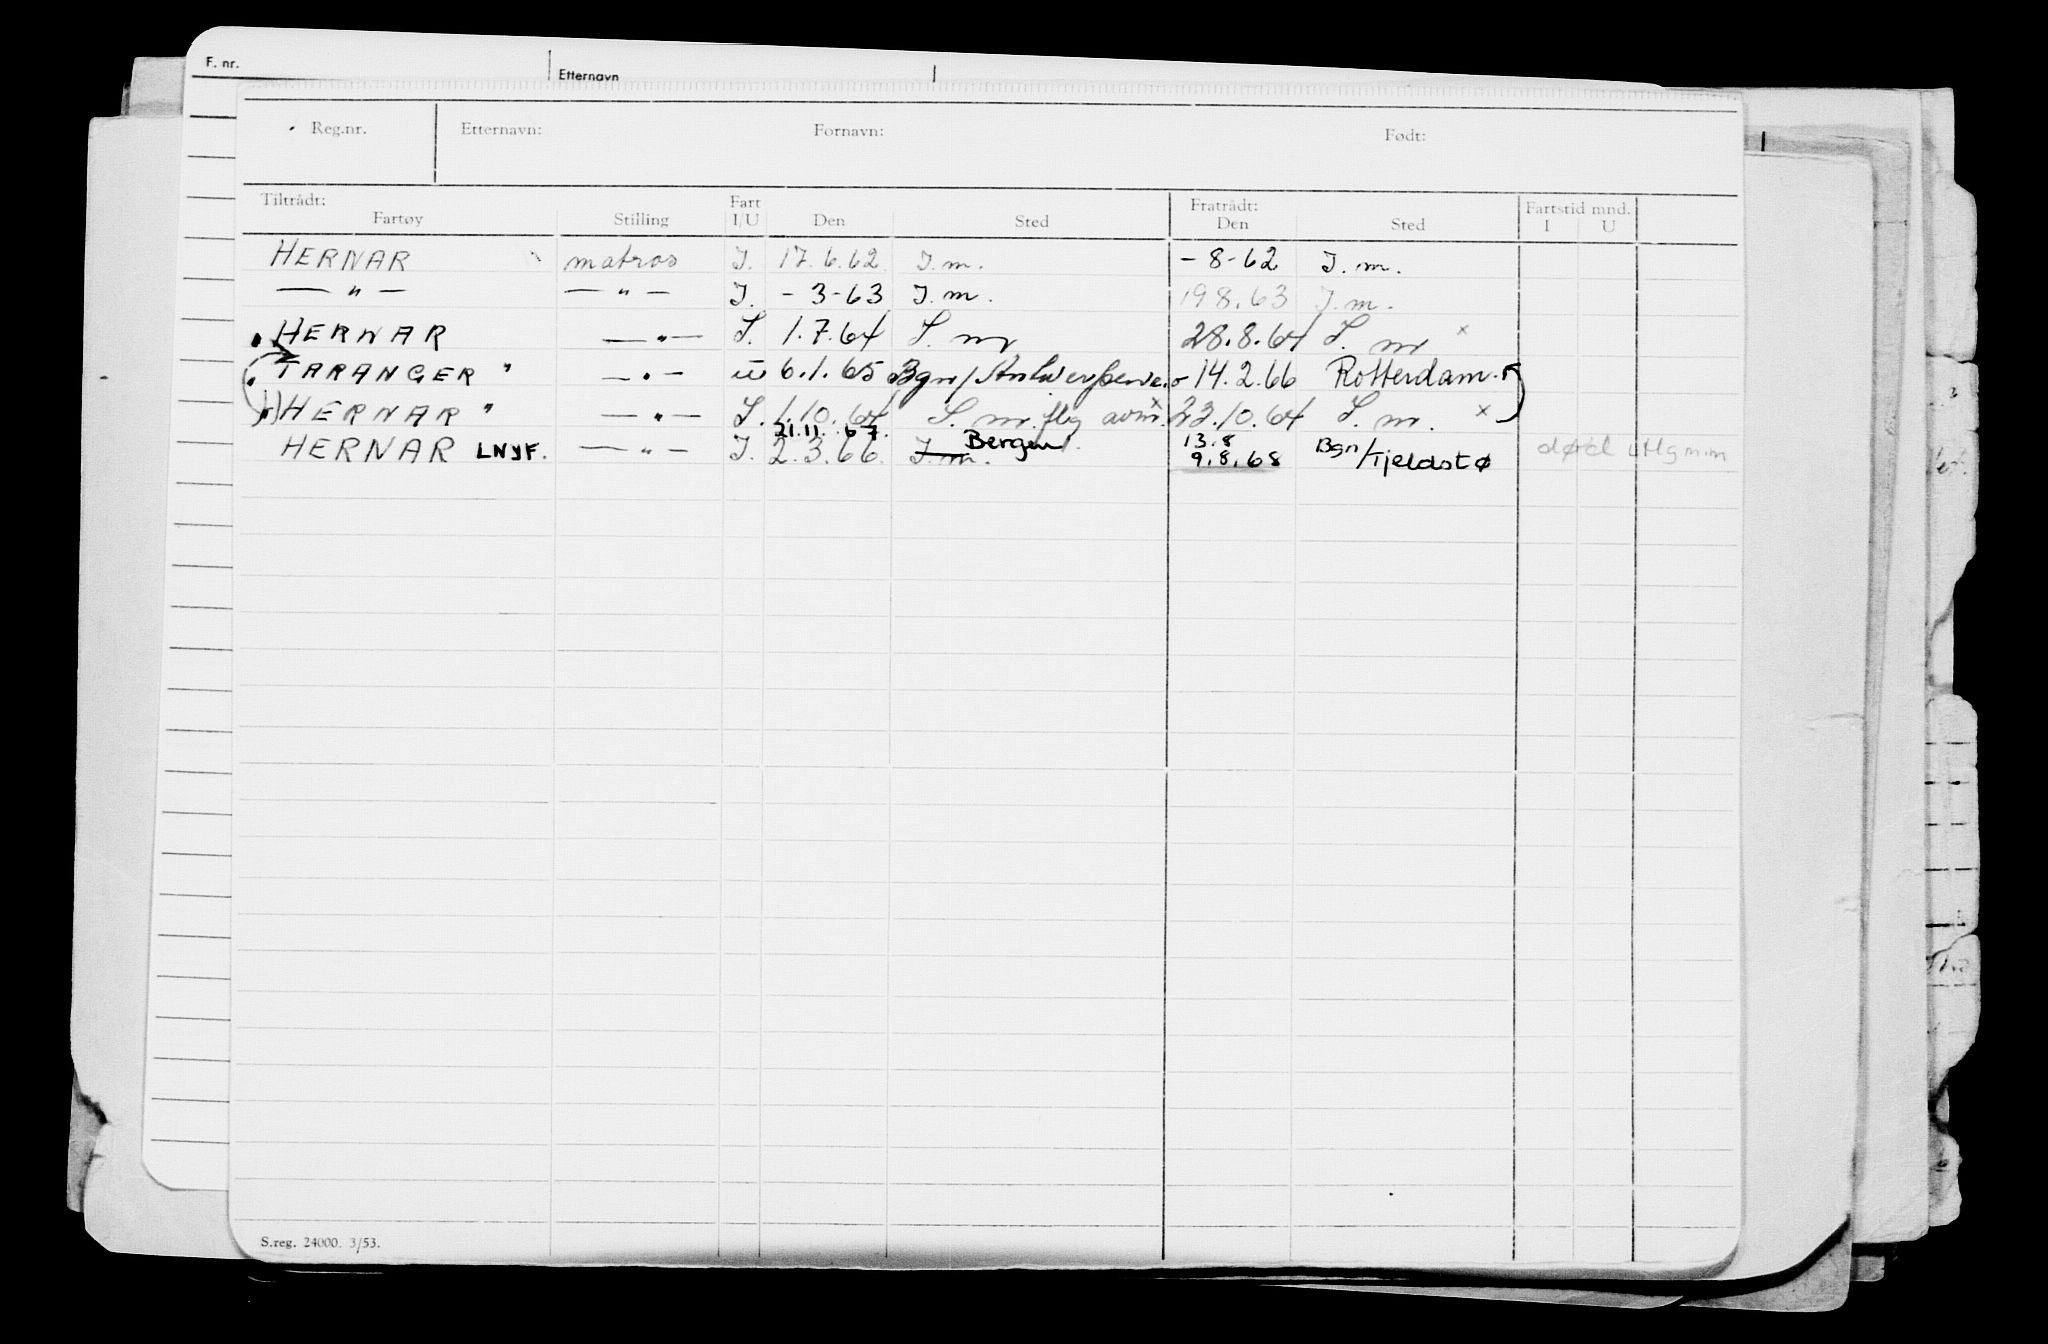 F. nr. Etternavn
Reg.nr. Etternavn: Fornavn: Født:
Tiltrådt: Fart Fratrådt: Fartstid mnd.
Fartøy Stilling I/U Den Sted Den Sted I U
HERNAR matros I. 17.6.62 I.m. -8-62 I.m.
— " — — " — I. -3-63 I.m. 19 8.63 I.m.
HERNAR — " — I. 1.7.64 I.m 28.8.64 I.m x
TARANGER " — " — u 6.1.65 Bgn/ 14.2.66 Rotterdam
HERNAR " — " — I. 1.10.64 I.m. x 23.10.64 I.m. x
21.11.67. Bergen 13.8
HERNAR LNYF. — " — I. 2.3.66. I.m. 9.8.68 Bgn/Tjeldstø
S.reg. 24000. 3/53.